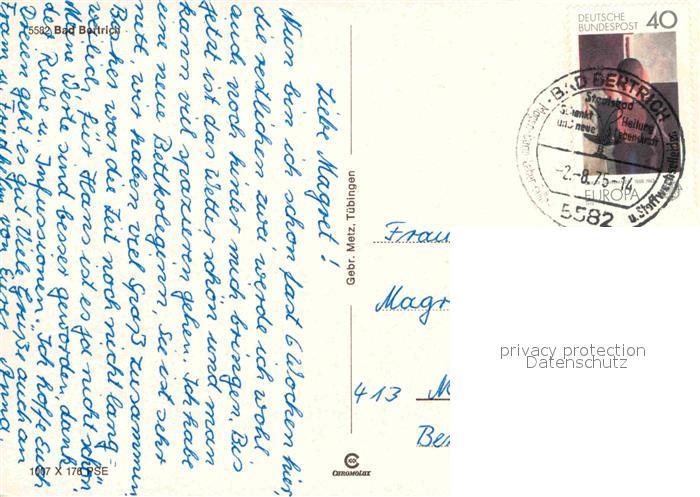 5582 Bad Bertrich
Liebe Magret!
Nun bin ich schon fast 6 Wochen hier,
die restlichen zwei werde ich wohl
auch noch hinter mich bringen. Bis
jetzt ist das Wetter schön und man
kann viel spazieren gehen. Ich habe
eine neue Bettkollegin, sie ist sehr
nett, wir haben viel Spaß zusammen
Bisher war die Zeit noch nicht lang-
weilig, für Hans ist es ja nicht schön,
Meine Werte sind besser geworden, dank
der Ruhe u. Infussionen. Ich hoffe Euch
Dreien geht es gut. Viele Grüße auch an
Fam. von Eurer Anna.
1007 X 176 PSE
Gebr. Metz, Tübingen
CHROMOLUX
DEUTSCHE
BUNDESPOST
40
EUROPA
BAD BERTRICH
Staatsbad
Schenkt Heilung
und neue Lebenskraft
-2.-8.75-14
5582
u. Stoffwechselleiden
Frau
Magr
413 M
Be
privacy protection
Datenschutz